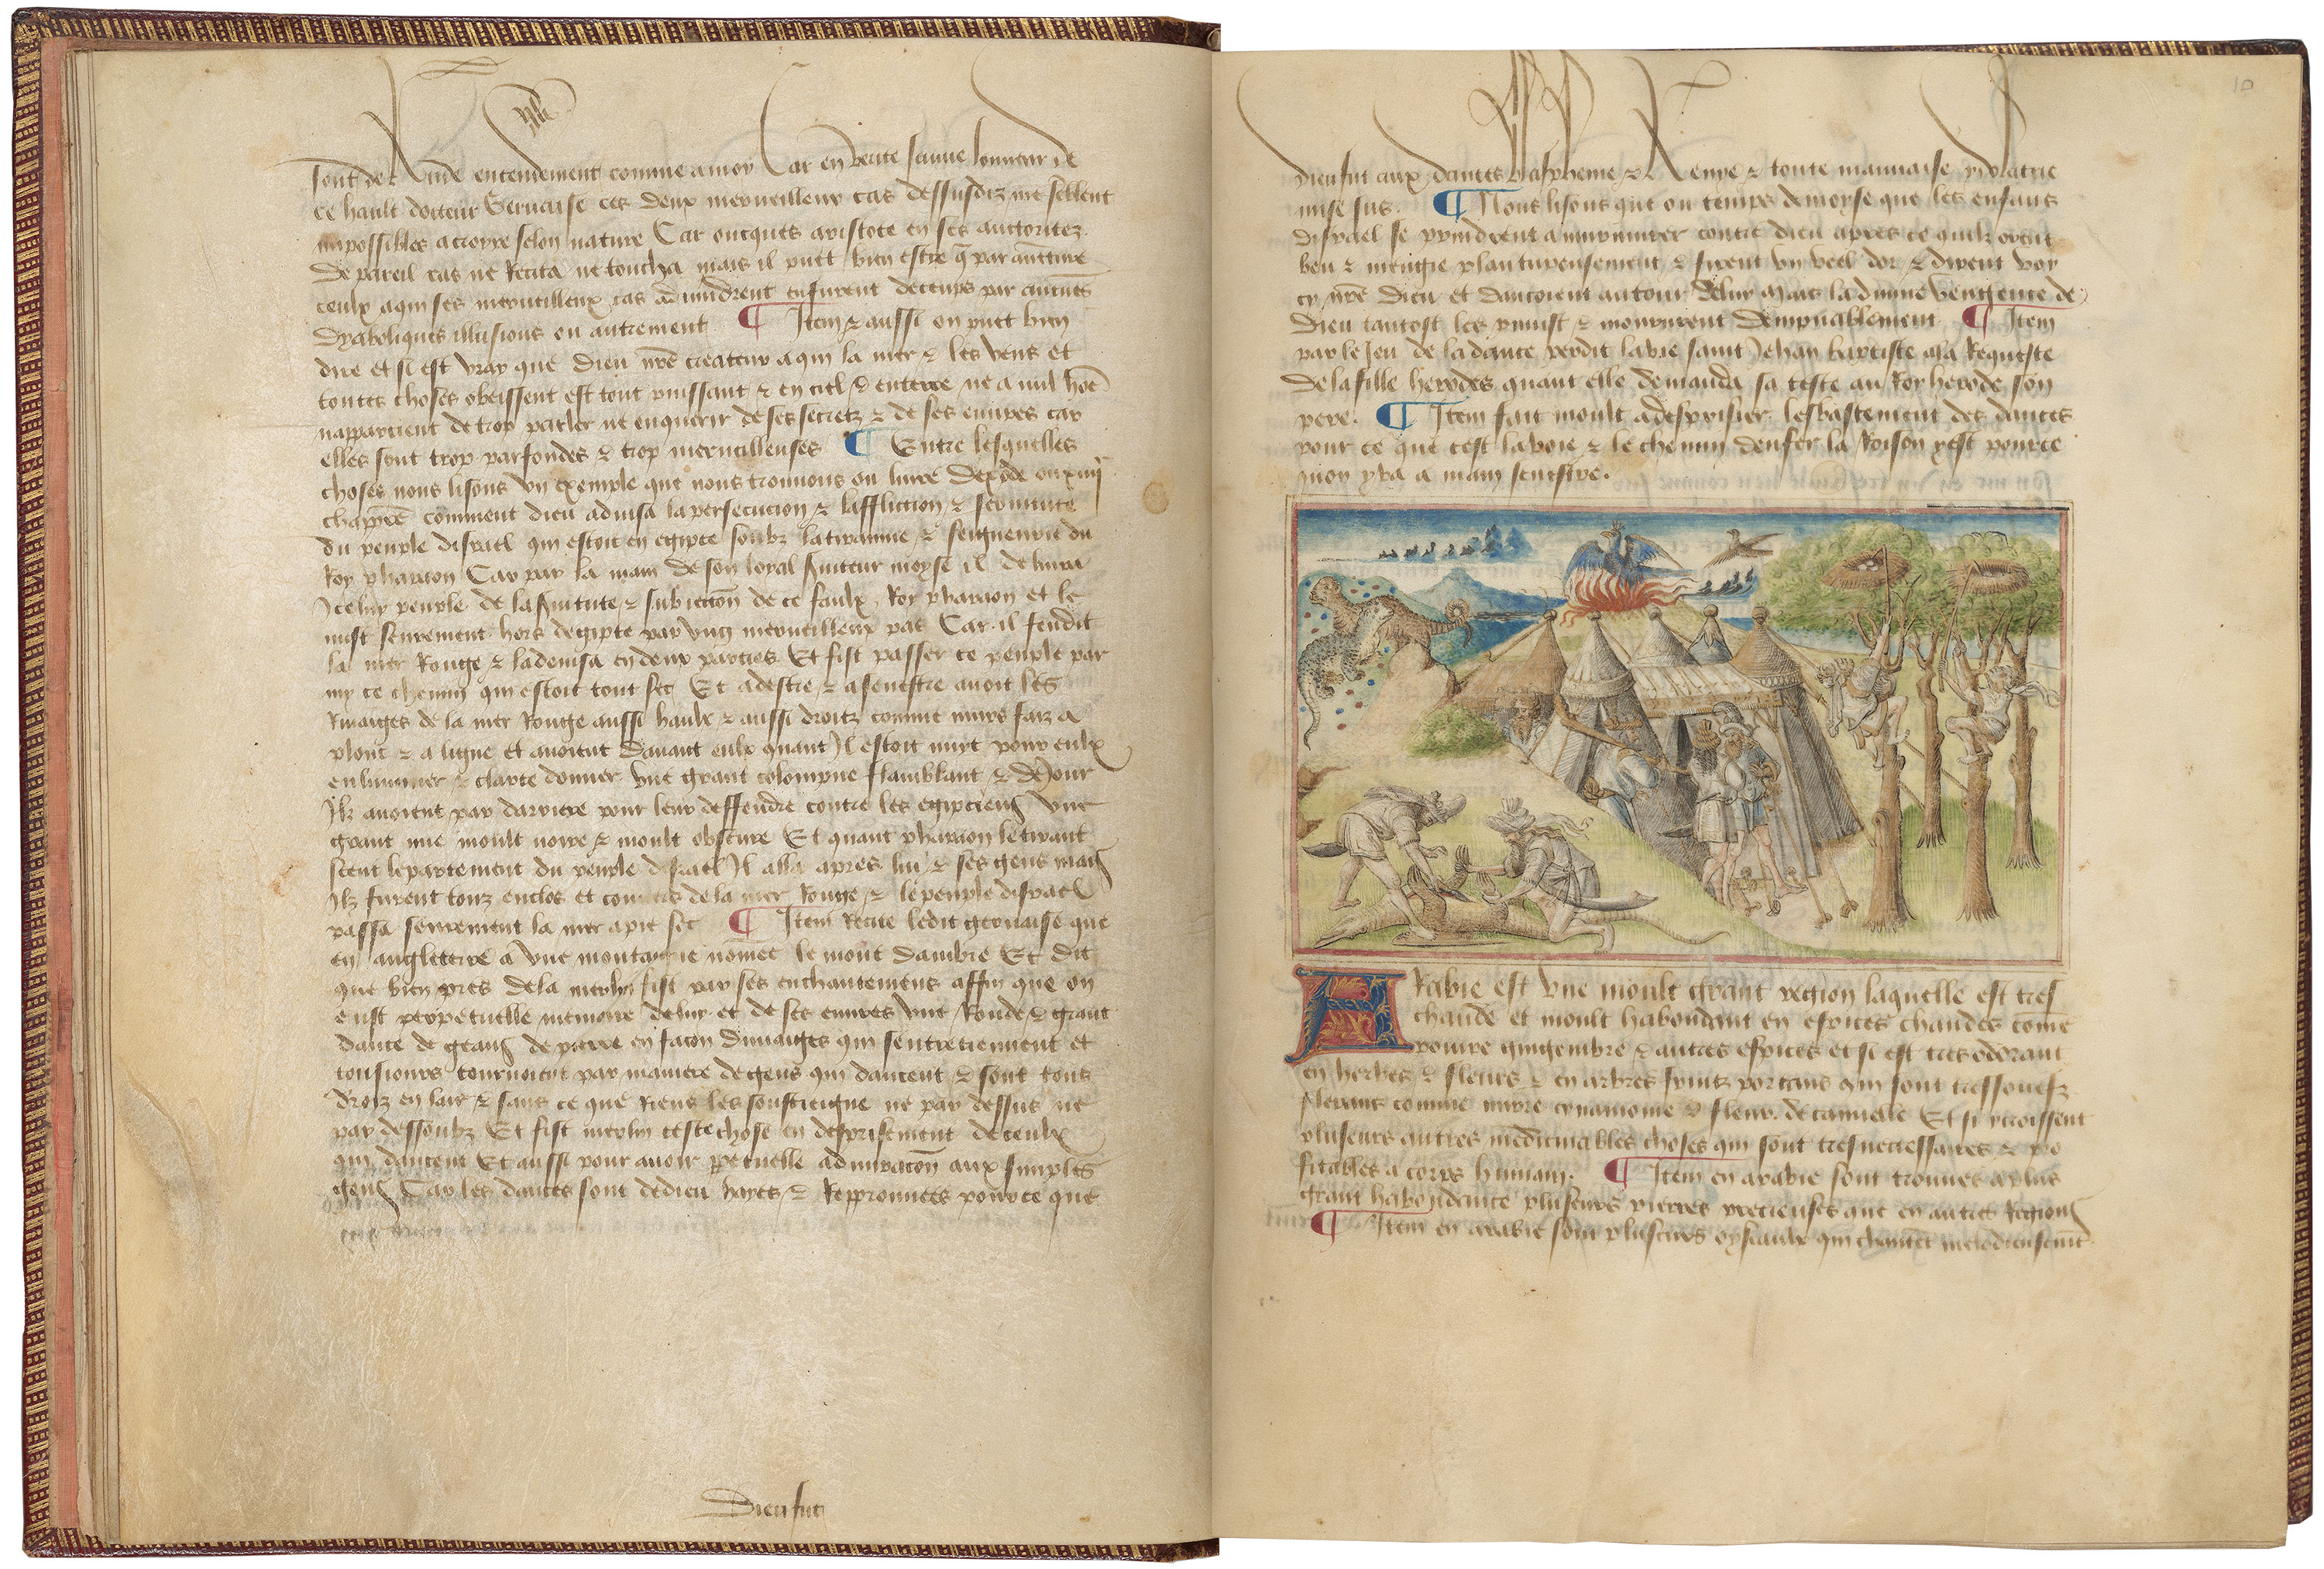 sont de Rude entendement comme a moy Car en verite saulue lonneur de
ce hault docteur Geruaise ces deux merueilleux cas dessusdiz me semblent
impossibles a croyre selon nature Car oncques aristote en ses auctoritez
de pareil cas ne Recita ne toucha mais il puet bien estre q̄ par auēture
ceulx a qui ses merueilleux cas aduindrent en furent deceups par aucunes
dyaboliques illusions ou autrement ¶ Item & aussi on puet bien
dire et si est vray que dieu nrē createur a qui la mer & les vens et
toutes choses obeissent est tout puissant & en ciel & en terre ne a nul hōe
nappartient de trop parler ne enquerir de ses secretz & de ses euures car
elles sont trop parfondes & trop merueilleuses ¶ Entre lesquelles
choses nous lisons vn exemple que nous trouuons ou liure dexode ou xiiij
chapp̄re comment dieu aduisa la persecucion & laffliction & seruitute
du peuple disrael qui estoit en egipte soubz la tirannie & seigneurie du
Roy pharaon Car par la main de son loyal s̄uiteur moyse il deliura
Icelui peuple de la s̄uitute & subiection de ce faulx Roy pharaon et le
mist seurement hors degipte par vng merueilleux pas Car il fendit
la mer Rouge & la deuisa en deux parties Et fist passer ce peuple par
my ce chemin qui estoit tout sec Et a destre & a senestre auoit les
Riuaiges de la mer Rouge aussi haulx & aussi droitz comme murs faiz a
plonc & a ligne et auoient dauant eulx quant Il estoit nuyt pour eulx
enluminer & clarte donner vne grant colompne flamblant & de Jour
Ilz auoient par darriere pour leur deffendre contre les egipciens vne
grant nue moult noire & moult obscure Et quant pharaon le tirant
sceut le partement du peuple disrael Il alla apres lui & ses gens mais
Ilz furent touz enclos et couuers de la mer Rouge & le peuple disrael
passa seurement la mer a pie sec ¶ Item Recite ledit geruaise que
en angleterre a vne montaigne nōmee le mont dambre Et dit
que bien pres de la merlin fist par ses enchantemens affin que on
eust perpetuelle memoire de luy et de ses euures vne Ronde & grant
dance de geans de pierre en facon dimaiges qui sentretiennent et
tousiours tournoient par maniere de gens qui dancent & sont tous
droiz en lair & sans ce que Riens les soustiengne ne par dessus ne
par dessoubz Et fist merlin ceste chose en desprisement de ceulx
qui dancent Et aussi pour auoir p̄petuelle admiracōn aux simples
gens Car les dances sont de dieu hayes & Repprouuees pource que
Dieu fut
10
dieu fut aux dances blaspheme & Renye & toute mauuaise ydolatrie
mise sus. ¶ Nous lisons que ou temps de moyse que les enfans
disrael se prindrent a murmurer contre dieu apres ce quilz orent
beu & mengie plantureusement & firent vn veel dor & dirent voy
cy nrē dieu et dancoient autour de luy Mais la diuine vengence de
dieu tantost les punist & moururent dempnablement ¶ Item
par le Jeu de la dance perdit la vie saint Jehan baptiste a la Requeste
de la fille herodes quant elle demanda sa teste au Roy herode son
pere. ¶ Item fait moult a desprisier lesbastement des dances
pour ce que cest la voie & le chemin denfer la Roison yest pource
quon y va a main senestre.
ARabie est vne moult grant region laquelle est tres
chaude et moult habondant en espices chaudes cōme
poiure gingembre & autres espices et si est tres odorant
en herbes & fleurs & en arbres fruitz portans qui sont tressouefz
flerans comme mirre cynamome & fleur de cannelle Et si y croissent
pluseurs autres medicinables choses qui sont tresnecessaires & pro
fitables a corps humain. ¶ Item en arabie sont trouuees a plus
grant habondance pluseurs pierres precieuses que en autres Regions
¶ Item en arabie sont pluseurs oyseaulx qui chantēt melodieusemēt